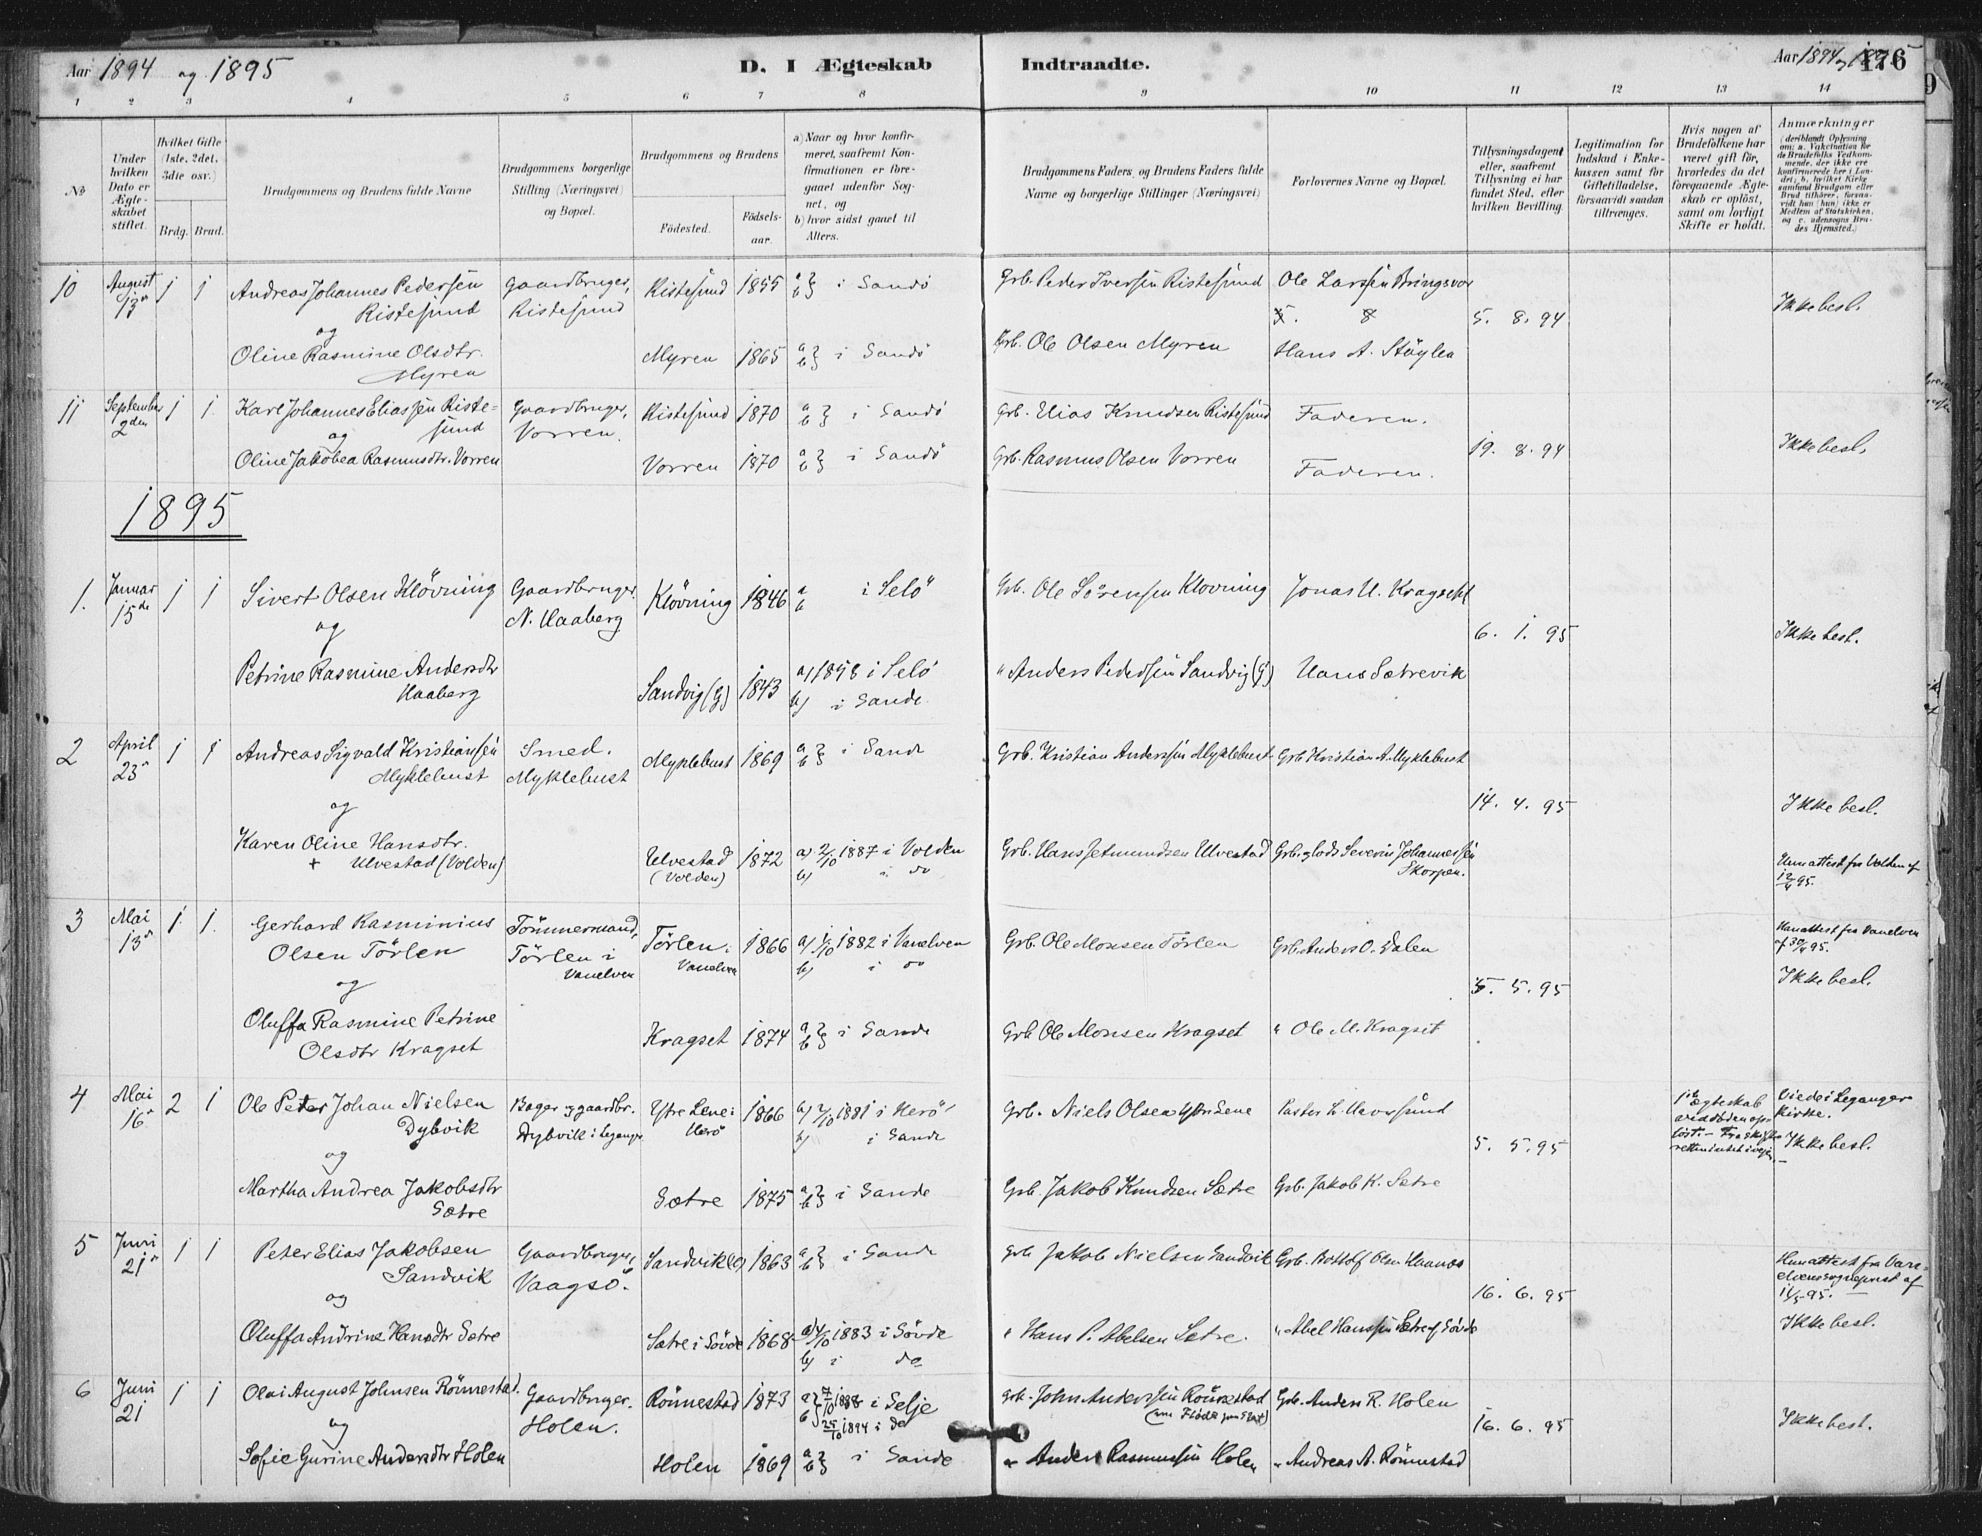 Aar 1894 og 1895
D. I Ægteskab Indtraadte.
Aar 1894 og 1895
176
1 2 3 4 5 6 7 8 9 10 11 12 13 14
No
Under hvilken Dato er Ægteskabet stiftet.
Hvilket Gifte (1ste, 2det, 3die osv.)
Brdg. Brud.
Brudgommens og Brudens fulde Navne
Brudgommens borgerlige Stilling (Næringsvei) og Bopæl.
Brudgommens og Brudens
Fødested.
Fødselsaar.
a) Naar og hvor konfirmeret, saafremt Konfirmationen er foregaaet udenfor Sognet, og
b) hvor sidst gaaet til Alters.
Brudgommens Faders og Brudens Faders fulde Navne og borgerlige Stillinger (Næringsvei)
Forlovernes Navne og Bopæl.
Tillysningsdagen, eller, saafremt Tillysning ei har fundet Sted, efter hvilken Bevilling.
Legitimation for Indskud i Enkekassen samt for Giftetilladelse, forsaavidt saadan tiltrænges.
Hvis nogen af Brudefolkene har været gift før, hvorledes da det foregaaende Ægteskab er opløst, samt om lovligt Skifte er holdt.
Anmærkninger
10 August 13de 1 1 Andreas Johannes Pedersen Gaardbruger, Ristesund 1855 a b } i Sandø Grb. Peder Iversen Ristesund Ole Larsen Bringsvor
Ristesund Ristesund 5. 8. 94 Ikke besl.
og
Oline Rasmine Olsdtr. Myren 1865 a b } i Sandø Grb. Ole Olsen Myren Hans A. Støylen
Myren
11 September 2den 1 1. Karl Johannes Eliassen Riste- Gaardbruger, Ristesund 1870 a b } i Sandø Grb. Elias Knudsen Ristesund Faderen.
sund Vorren.
og 19. 8. 94 Ikke besl.
Oline Jakobea Rasmusdtr. Vorren Vorren 1870 a b } i Sandø Grb. Rasmus Olsen Vorren Faderen.
1895
1. Januar 15de 1 1 Sivert Olsen Kløvning Gaardbruger. Kløvning 1846 a b i Selø Grb. Ole Sørensen Klovning Jonas U. Kragseth
N. Haaberg
og 6. 1. 95 Ikke besl.
Petrine Rasmine Andersdtr Sandvig (G) 1843 a) 1858 i Selø " Anders Pedersen Sandvig (G) Hans Sætrevik
Haaberg b) i Sande
2 April 23de 1 1 Andreas Sigvald Kristiansen Smed. Myklebust 1869 a b } i Sande Grb. Kristian Anderssen Myklebust Grb Kristian A. Myklebust
Myklebust Myklebust
og 14. 4. 95 Ikke besl.
Karen Oline Hansdtr. Ulvestad 1872 a) 2/10 1887 i Volden Grb. Hans Jetmundsen Ulvestad Grb. Severin Johannessen
+ Ulvestad (Volden) (Volden) b) i do Skorpen. Hun attest fra Volden af 12/4 95.
3 Mai 13de 1. 1. Gerhard Rasminius Tømmermand, Tørlen i 1866 a) 1/10 1882 i Vanelven Grb. Ole Monsen Tørlen Grb. Anders O. Dalen Han attest fra Vanelven
Olsen Tørlen Tørlen i Vanelven Vanelven b) i do af 30/4 95.
og 5. 5. 95 Ikke besl.
Oluffa Rasmine Petrine Kragset 1874 a b } i Sande Grb Ole Monsen Kragset " Ole M. Kragset
Olsdtr Kragset
4 Mai 16de 2 1 Ole Peter Johan Nielsen Bager og gaardbr. Ytre Lene i 1866 a) 2/10 1881 i Herø Grb. Niels Olsen Ytre Lene Pastor L. Haversund 1ste Ægteskab Viede i Leganger
Dybvik Dybvik i Leganger Herø b) i Sande ved døden op- Kirke.
og 5. 5. 95 løst. - Fra Skifte- Ikke besl.
retten intet i vejen.
Martha Andrea Jakobsdtr Sætre 1875 a b } i Sande Grb. Jakob Knudsen Sætre Grb. Jakob K. Sætre
Sætre
5 Juni 21de 1 1 Peter Elias Jakobsen Gaardbruger, Sandvik (G) 1863 a b } i Sande Grb Jakob Nielsen Sandvik Grb. Botolf Olsen Haanæs Hun attest fra Van-
Sandvik Vaagsø. elvens sognepræst af
og 16. 6. 95 11/5 95.
Oluffa Andrine Hansdtr Sætre Sætre i Søvde 1868 a) 4/10 1883 i Søvde " Hans P. Abelsen Sætre. " Abel Hanssen Sætre af Søvde Ikke besl.
b) i do
6 Juni 21 1 1 Olai August Johnsen Rønnestad. Gaardbruger. Rønnestad 1873 a b } 7/10 1888 i Selje Grb. John Anderssen Rønnestad Grb. Anders R. Holen
og Holen. 25/10 1894 i do 16. 6. 95 Ikke besl.
Sofie Gurine Andersdtr Holen Holen 1869 a b } i Sande " Anders Rasmussen Holen " Andreas A. Rønnestad